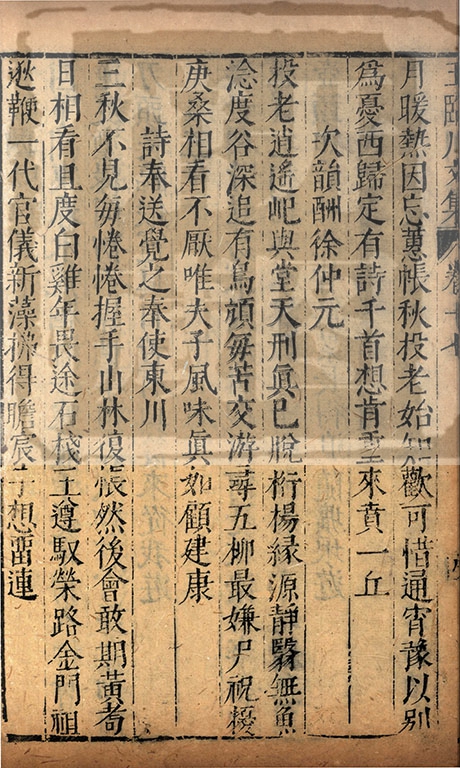 王臨川文集 卷十七
月暖熱因忘蕙帳秋投老始知歡可惜通宵豫以別
爲憂西歸定有詩千首想肯重來賁一丘
次韻酬徐仲元
投老逍遙屺與堂天刑眞已脫桁楊緣源靜翳無魚
淰度谷深追有鳥頏每苦交游尋五柳最嫌尸祝擾
庚桑相看不厭唯夫子風味眞如顧建康
詩奉送覺之奉使東川
三秋不見每惓惓握手山林復悵然後會敢期黃耇
日相看且度白雞年畏途石棧王遵馭榮路金門祖
逖鞭一代官儀新藻拂得瞻宸宇想畱連